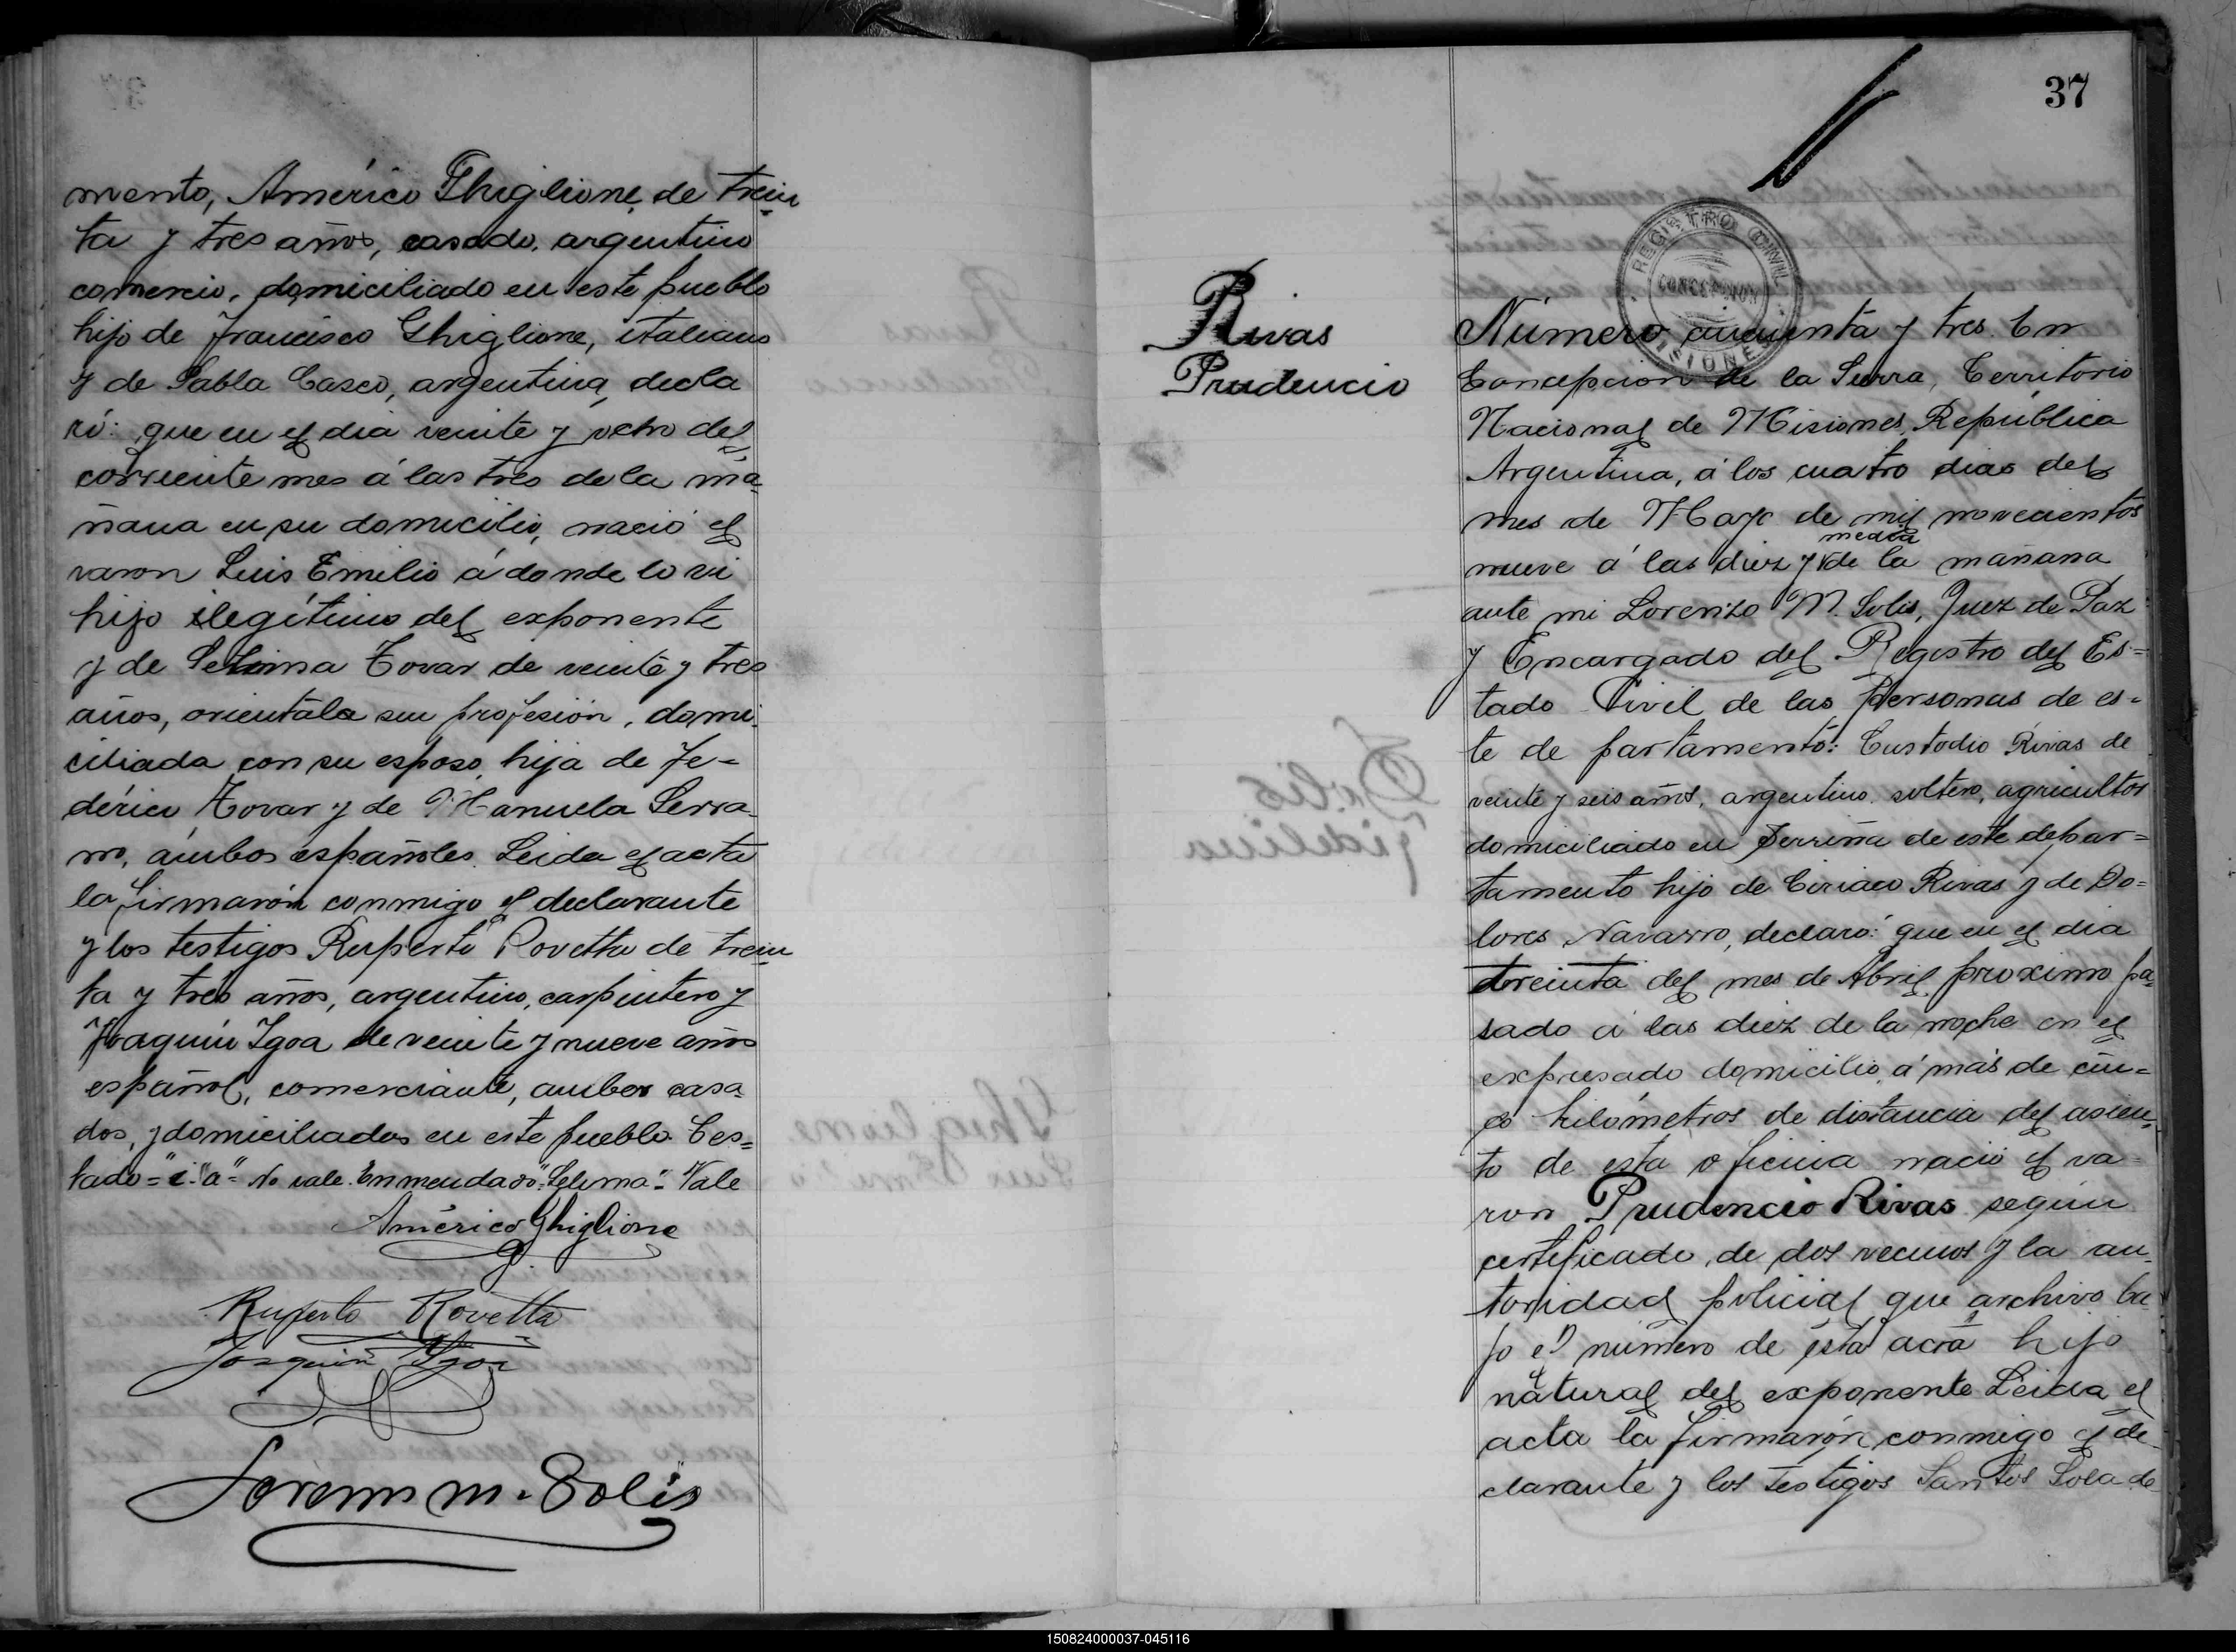 mento, Américo Ghiglione, de trein
ta y tres años, casado, argentino
comercio, domiciliado en este pueblo
hijo de Francisco Ghiglione, italiano
y de Pabla Casco, argentina, decla
ró: que en el dia veinte y ocho del
corriente mes á las tres de la ma-
ñana en su domicilio, nació el
varon Luis Emilio á donde lo vi
hijo ilegítimo del exponente
y de Tovar de veinte y tres
años, oriental sin profesión, domi-
ciliada con su esposo, hija de Fe-
dérico Tovar y de Manuela Serra-
no, ámbos españoles. Leida el acta
la firmarón conmigo el declarante
y los testigos Ruperto Rovetta de trein
ta y trés años, argentino, carpintero y
Joaquin Igoa de veinte y nueve años
español, comerciante, ambos casa-
dos, y domiciliados en este pueblo. Tes=
tado="i"."a"= No vale. Enmendado: Vale
Américo Ghiglione
Ruperto Rovetta
Joaquin Igoa
Lorenzo M. Solis
37
REGISTRO CIVIL
CONCEPCION
MISIONES
Rivas
Prudencio
Número cincuenta y tres. En
Concepcion de la Sierra, Territorio
Nacional de Misiones, República
Argentina, á los cuatro dias del
mes de Mayo de mil novecientos
nueve á las diez y media de la mañana
ante mi Lorenzo M. Solis, Juez de Paz
y Encargado del Registro del Es=
tado Civil de las personas de es-
te departamento: Custodio Rivas de
veinte y seis años, argentino, soltero, agricultor
domiciliado en de este depar=
tamento hijo de Ciriaco Rivas y de Do=
lores Navarro, declaró: que en el dia
treinta del mes de Abril proximo pa-
sado á las diez de la noche en el
expresado domicilio, á más de cin=
co kilómetros de distancia del asien-
to de esta oficina nació el va-
ron Prudencio Rivas según
certificado de dos vecinos y la au-
toridad policial que archivo ba-
jo el número de ésta acta hijo
natural del exponente Leida el
acta la firmarón conmigo el de-
clarante y los testigos Santos Sosa de
150824000037-045116